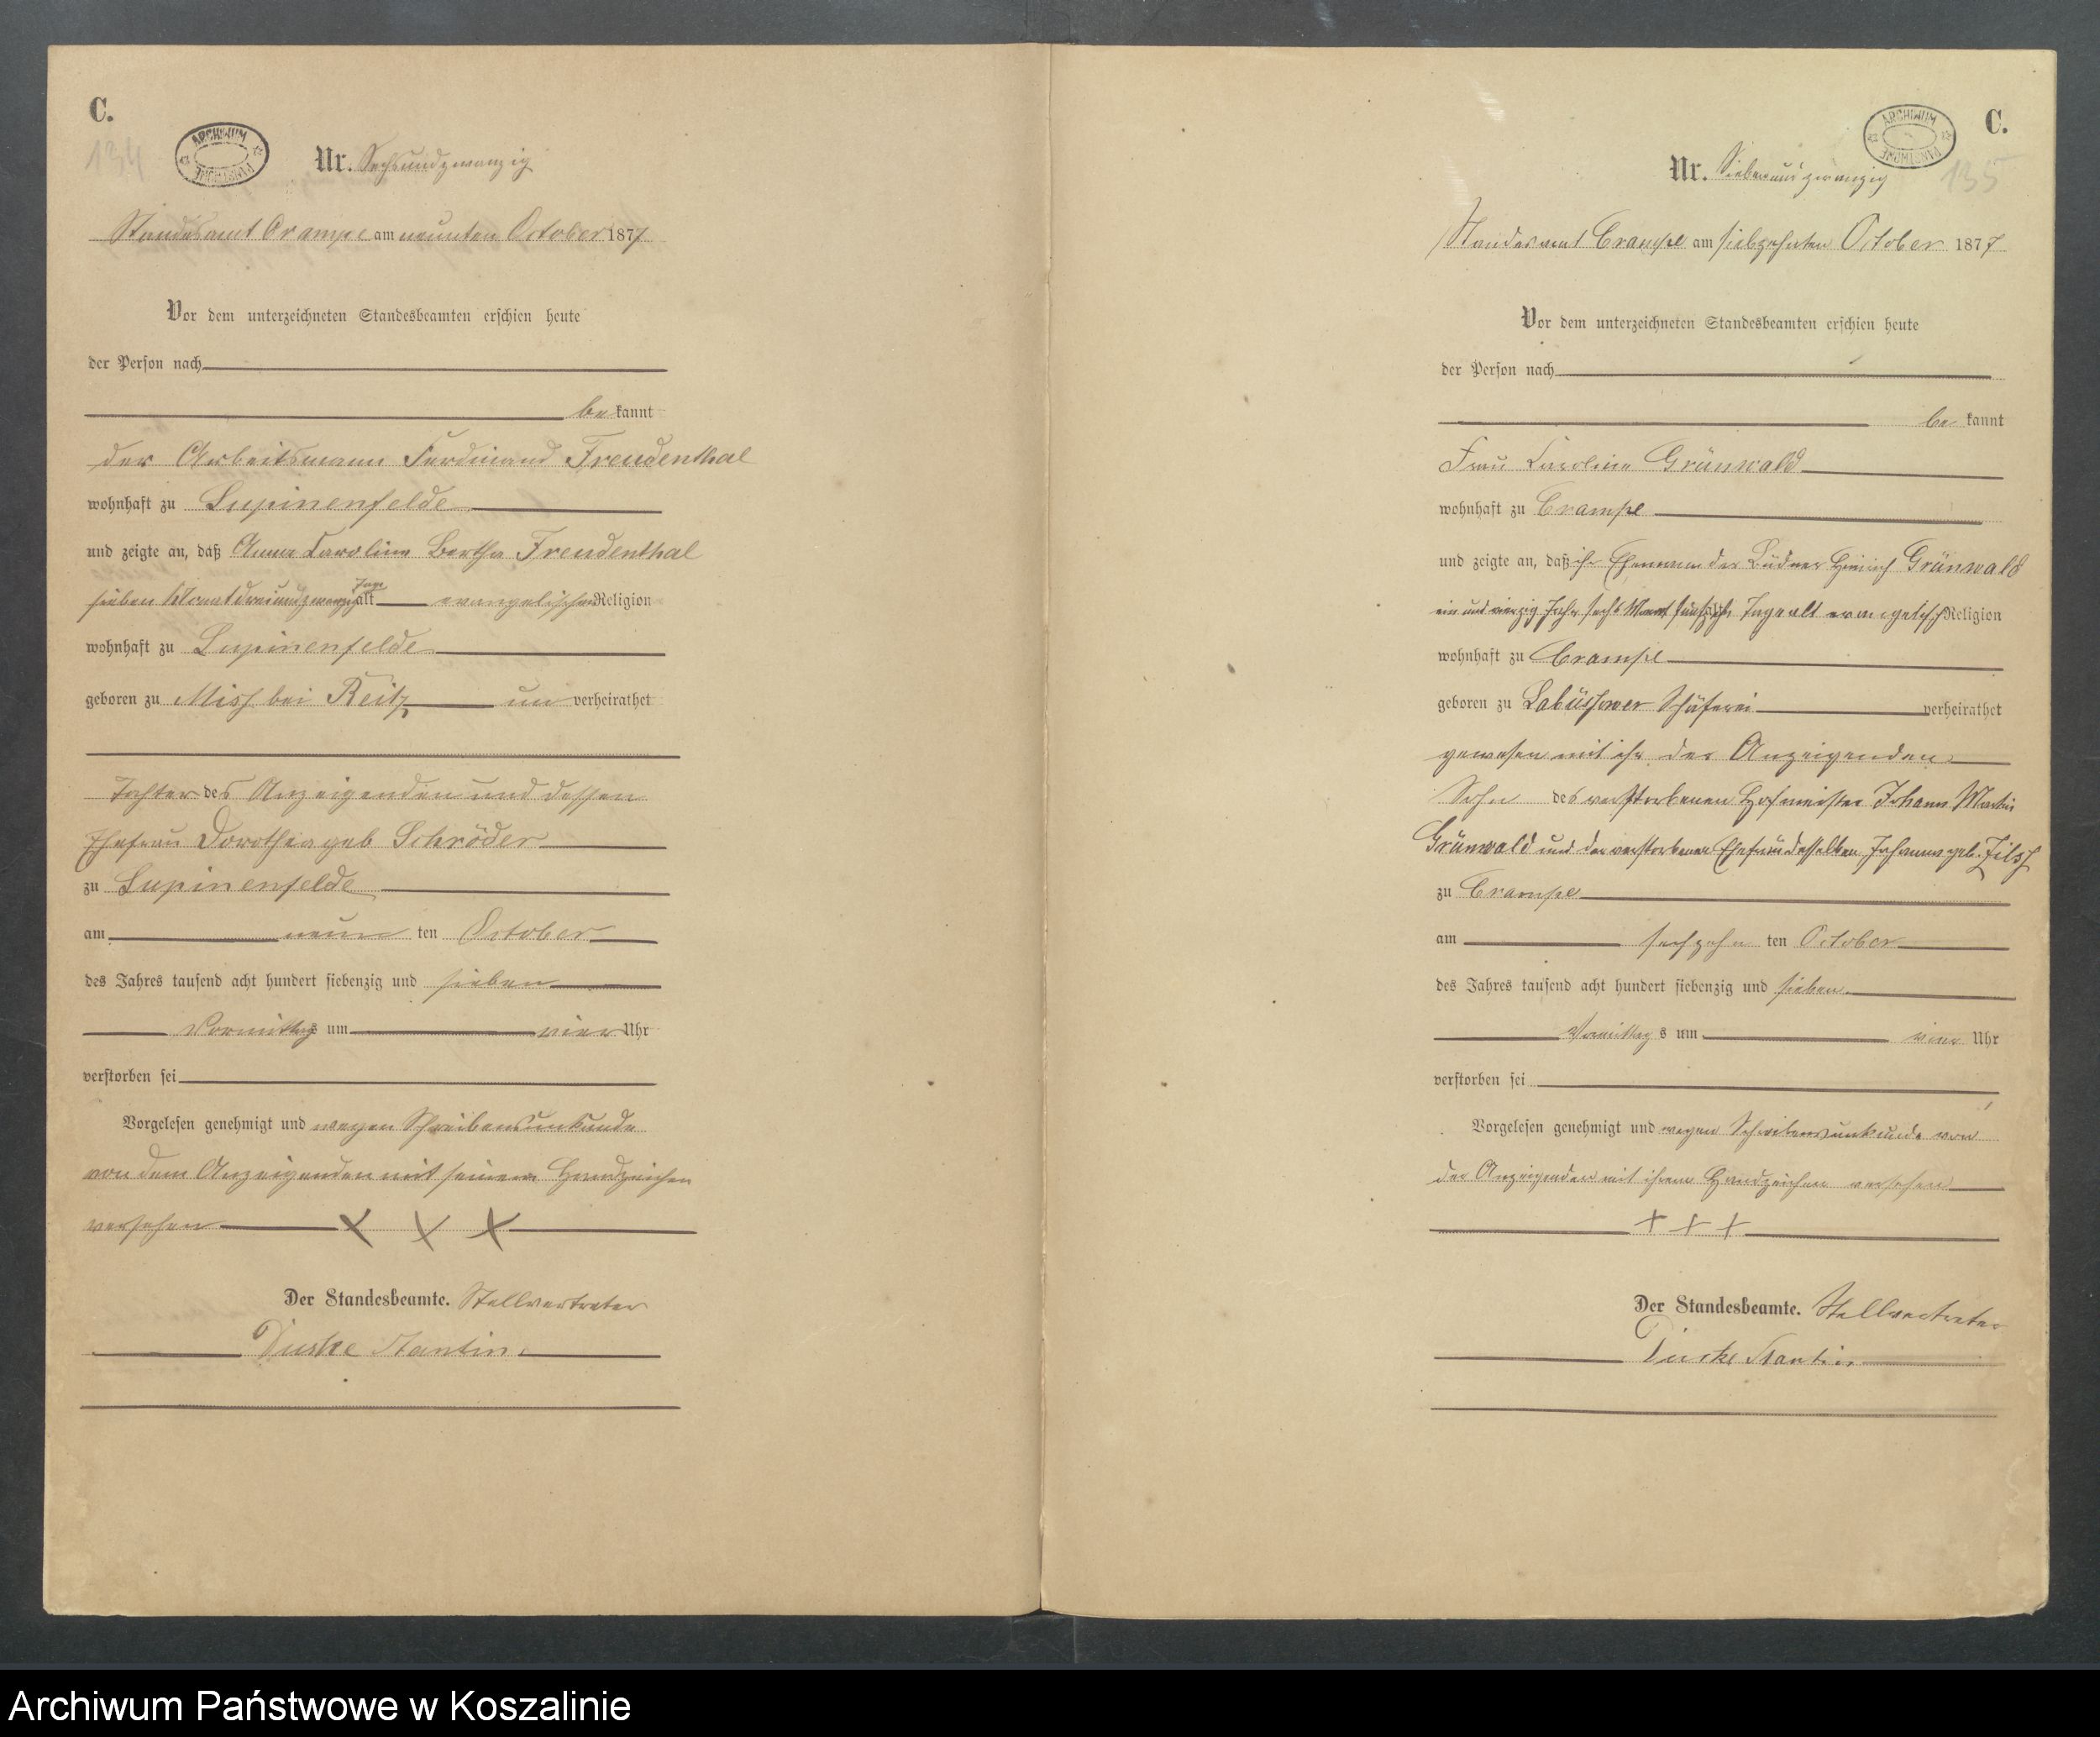 C.
134
ARCHIWUM PAŃSTWOWE
Nr. Sechsundzwanzig
Standesamt Crampe am neunten October 1877
Vor dem unterzeichneten Standesbeamten erschien heute
der Person nach
bekannt
der Arbeitsmann Ferdinand Freudenthal
wohnhaft zu Lupinenfelde
und zeigte an, daß Anna Caroline Bertha Freudenthal
sieben Monat dreiundzwanzig Tage alt evangelischer Religion
wohnhaft zu Lupinenfelde
geboren zu bei Reitz unverheirathet
Tochter des Anzeigenden und dessen
Ehefrau Dorothea geb Schröder
zu Lupinenfelde
am neunten October
des Jahres tausend acht hundert siebenzig und sieben
Vormittags um vier Uhr
verstorben sei
Vorgelesen genehmigt und wegen Schreibensunkunde
von dem Anzeigenden mit seinem Handzeichen
versehen X X X
Der Standesbeamte. Stellvertreter
Stantin
C.
135
ARCHIWUM PAŃSTWOWE
Nr. Siebenundzwanzig
Standesamt Crampe am siebzehnten October 1877
Vor dem unterzeichneten Standesbeamten erschien heute
der Person nach
bekannt
Frau Caroline Grünwald
wohnhaft zu Crampe
und zeigte an, daß ihr Ehemann der Büdner Heinrich Grünwald
ein und vierzig Jahr sechs Monat Tage alt evangelisch Religion
wohnhaft zu Crampe
geboren zu Labüssower Schäferei verheirathet
gewesen mit ihr der Anzeigenden
Sohn des verstorbenen Hofmeister Johann Martin
Grünwald und der verstorbenen Ehefrau desselben Johanna geb.
zu Crampe
am sechzehnten October
des Jahres tausend acht hundert siebenzig und sieben
Vormittags um vier Uhr
verstorben sei
Vorgelesen genehmigt und wegen Schreibensunkunde von
der Anzeigenden mit ihrem Handzeichen versehen
+ + +
Der Standesbeamte. Stellvertreter
Stantin
Archiwum Państwowe w Koszalinie